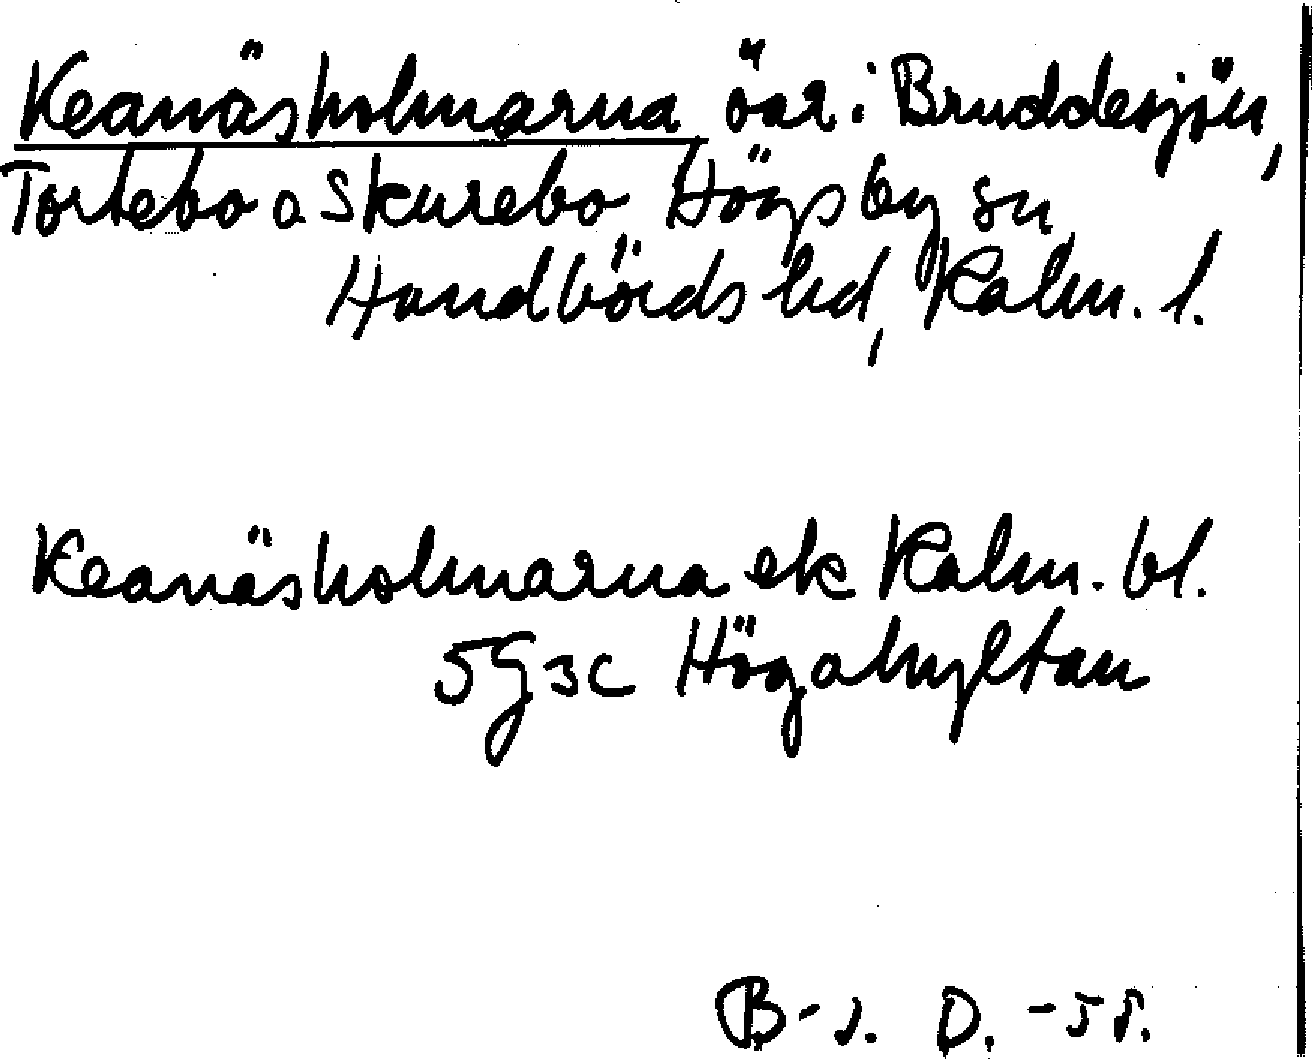 Keanäsholmarna öar i Bruddesjön,
Tortebo o Skurebo Högsby sn
Handbörds hd, Kalm. l.
Keanäsholmarna ek Kalm. bl.
5G3c Högahyltan
B-J. D. -58.